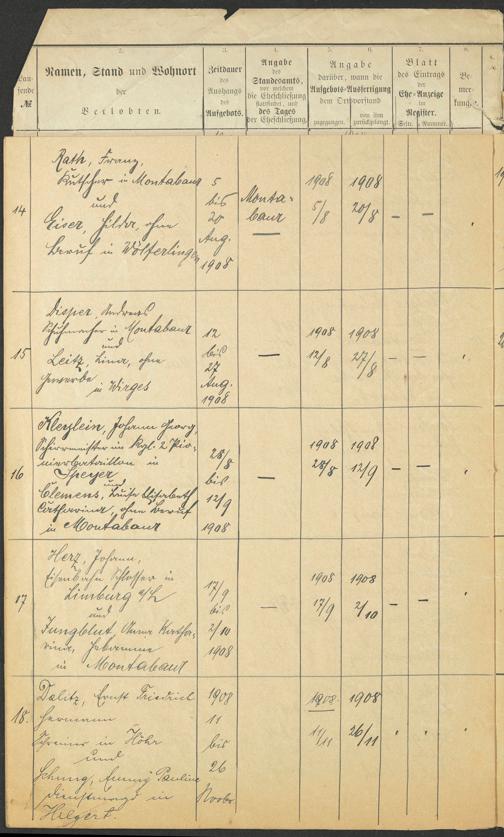 2. 3. 4. 5. 6. 7. 8.
Lau-
fende
№
Namen, Stand und Wohnort
der
Verlobten.
Zeitdauer
des
Aushangs
des
Aufgebots.
Angabe
des
Standesamts,
vor welchem
die Eheschließung
stattfindet, und
des Tages
der Eheschließung.
Angabe
darüber, wann die
Aufgebots-Ausfertigung
dem Ortsvorstand
zugegangen.
von ihm
zurückgelangt.
Blatt
des Eintrags
der
Ehe-Anzeige
im
Register.
Seite. Nummer.
Be-
mer-
kung.
14
Rath, Franz,
Kutscher in Montabaur
und
Eiser, Hilda, ohne
Beruf in Wölferlingen
5
bis
20
Aug.
1908
Monta-
baur
—
1908
5/8
1908
20/8
— —
15
Disper, Andreas
Schuhmacher in Montabaur
und
Leitz, Lina, ohne
Gewerbe
in Wirges
12
bis
27
Aug.
1908
—
1908
12/8
1908
27/8
— —
16
Kleylein, Johann Georg,
Schirrmeister im Kgl. 2 Pio-
nierbataillon in
Speyer
und
Clemens, Luise Elisabeth
Catharina, ohne Beruf
in Montabaur
28/8
bis
12/9
1908
—
1908
28/8
1908
12/9
— —
17
Herz, Johann,
Eisenbahn Schlosser in
Limburg a/L
und
Jungblut, Anna Katha-
rina, Hebamme
in Montabaur
17/9
bis
2/10
1908
—
1908
17/9
1908
2/10
— —
18.
Dalitz, Ernst Friedrich
Hermann
Schreiner in Höhr
und
Schung, Emmy Pauline
Dienstmagd in
Hilgert.
1908
11
bis
26
Novbr.
1908
11/11
1908
26/11